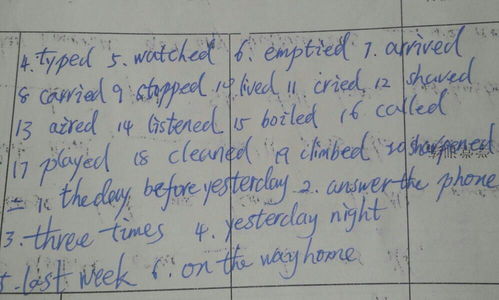 4. typed 5. watched 6. emptied 7. arrived
8 carried 9 stopped 10 lived 11. cried 12 shaved
13 aired 14 listened 15 boiled 16 called
17 played 18 cleaned 19 climbed 20 sharpened
二 1. the day before yesterday 2. answer the phone
3. three times 4. yesterday night
5. last week 6. on the way home